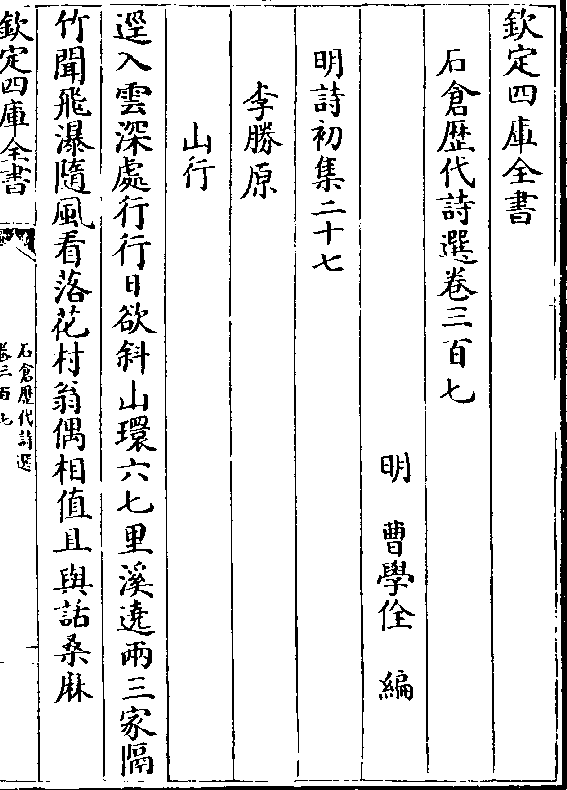 欽定四庫全書
石倉歴代詩選卷三百七
明 曹學佺 編
明詩初集二十七
李勝原
山行
逕入雲深處行行日欲斜山環六七里溪遶兩三家隔
竹聞飛瀑隨風看落花村翁偶相值且與話桑麻
欽定四庫全書
石倉歴代詩選
卷三百七